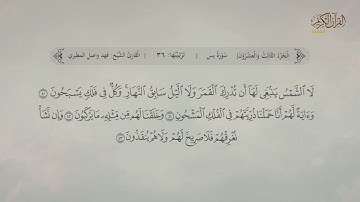 القرآن الكريم
الجزء الثالث والعشرون | سورة يس | ترتيبها: ٣٦ | القارئ الشيخ: فهد واصل المطيري
لَا الشَّمْسُ يَنۢبَغِى لَهَآ أَن تُدْرِكَ الْقَمَرَ وَلَا الَّيْلُ سَابِقُ النَّهَارِ ۚ وَكُلٌّ فِى فَلَكٍ يَسْبَحُونَ ٤٠
وَءَايَةٌ لَّهُمْ أَنَّا حَمَلْنَا ذُرِّيَّتَهُمْ فِى الْفُلْكِ الْمَشْحُونِ ٤١ وَخَلَقْنَا لَهُم مِّن مِّثْلِهِۦ مَا يَرْكَبُونَ ٤٢ وَإِن نَّشَأْ
نُغْرِقْهُمْ فَلَا صَرِيخَ لَهُمْ وَلَا هُمْ يُنقَذُونَ ٤٣